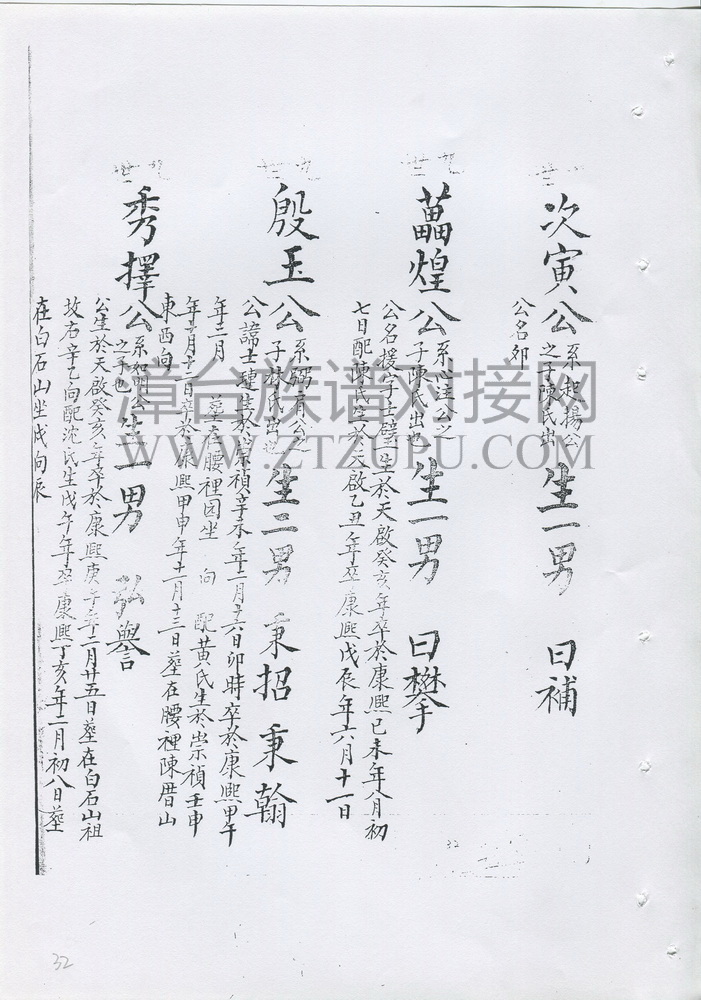 次寅公 系起揚公之子陳氏出 生一男 曰補
公名夘
藟煌公 子陳氏出也 生一男 曰攀
公名援字士璧生於天啟癸亥年卒於康熙己未年八月初
七日配陳氏生於天啟乙丑年卒康熙戊辰年六月十一日
殷玉公 系弼有公之子林氏出也 生二男 秉招 秉翰
公諱士璉生於崇禎辛未年二月十六日卯時卒於康熙甲午
年二月 塟在腰裡园坐 向 配黄氏生於崇禎壬申
年十二日卒於康熙甲申年十一月十三日塟在腰裡陳厝山
東西向
秀擇公 系如明公之子也 生一男 弘譽
公生於天啟癸亥年卒於康熙庚午年二月廿五日塟在白石山祖
坟右辛乙向配沈氏生戊午年卒康熙丁亥年二月初八日塟
在白石山坐戌向辰
漳台族谱对接网
WWW.ZTZUPU.COM
32
32